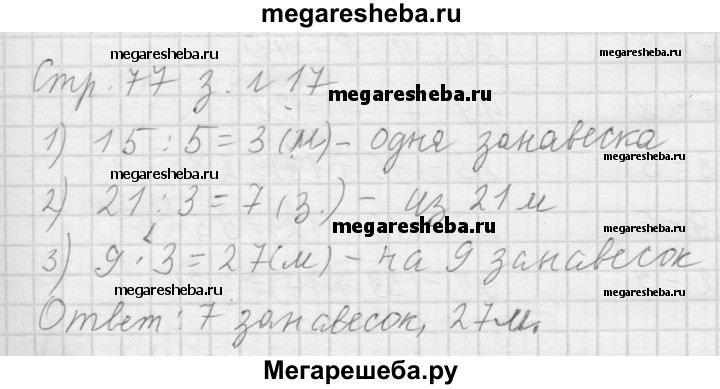 megaresheba.ru
megaresheba.ru megaresheba.ru
Стр. 77 з. № 17
megaresheba.ru
1) 15 : 5 = 3 (м) - одна занавеска
megaresheba.ru megaresheba.ru
2) 21 : 3 = 7 (з.) - из 21 м
megaresheba.ru
3) 9 · 3 = 27 (м) - на 9 занавесок
Ответ : 7 занавесок, 27 м.
megaresheba.ru megaresheba.ru
Мегарешеба.ру